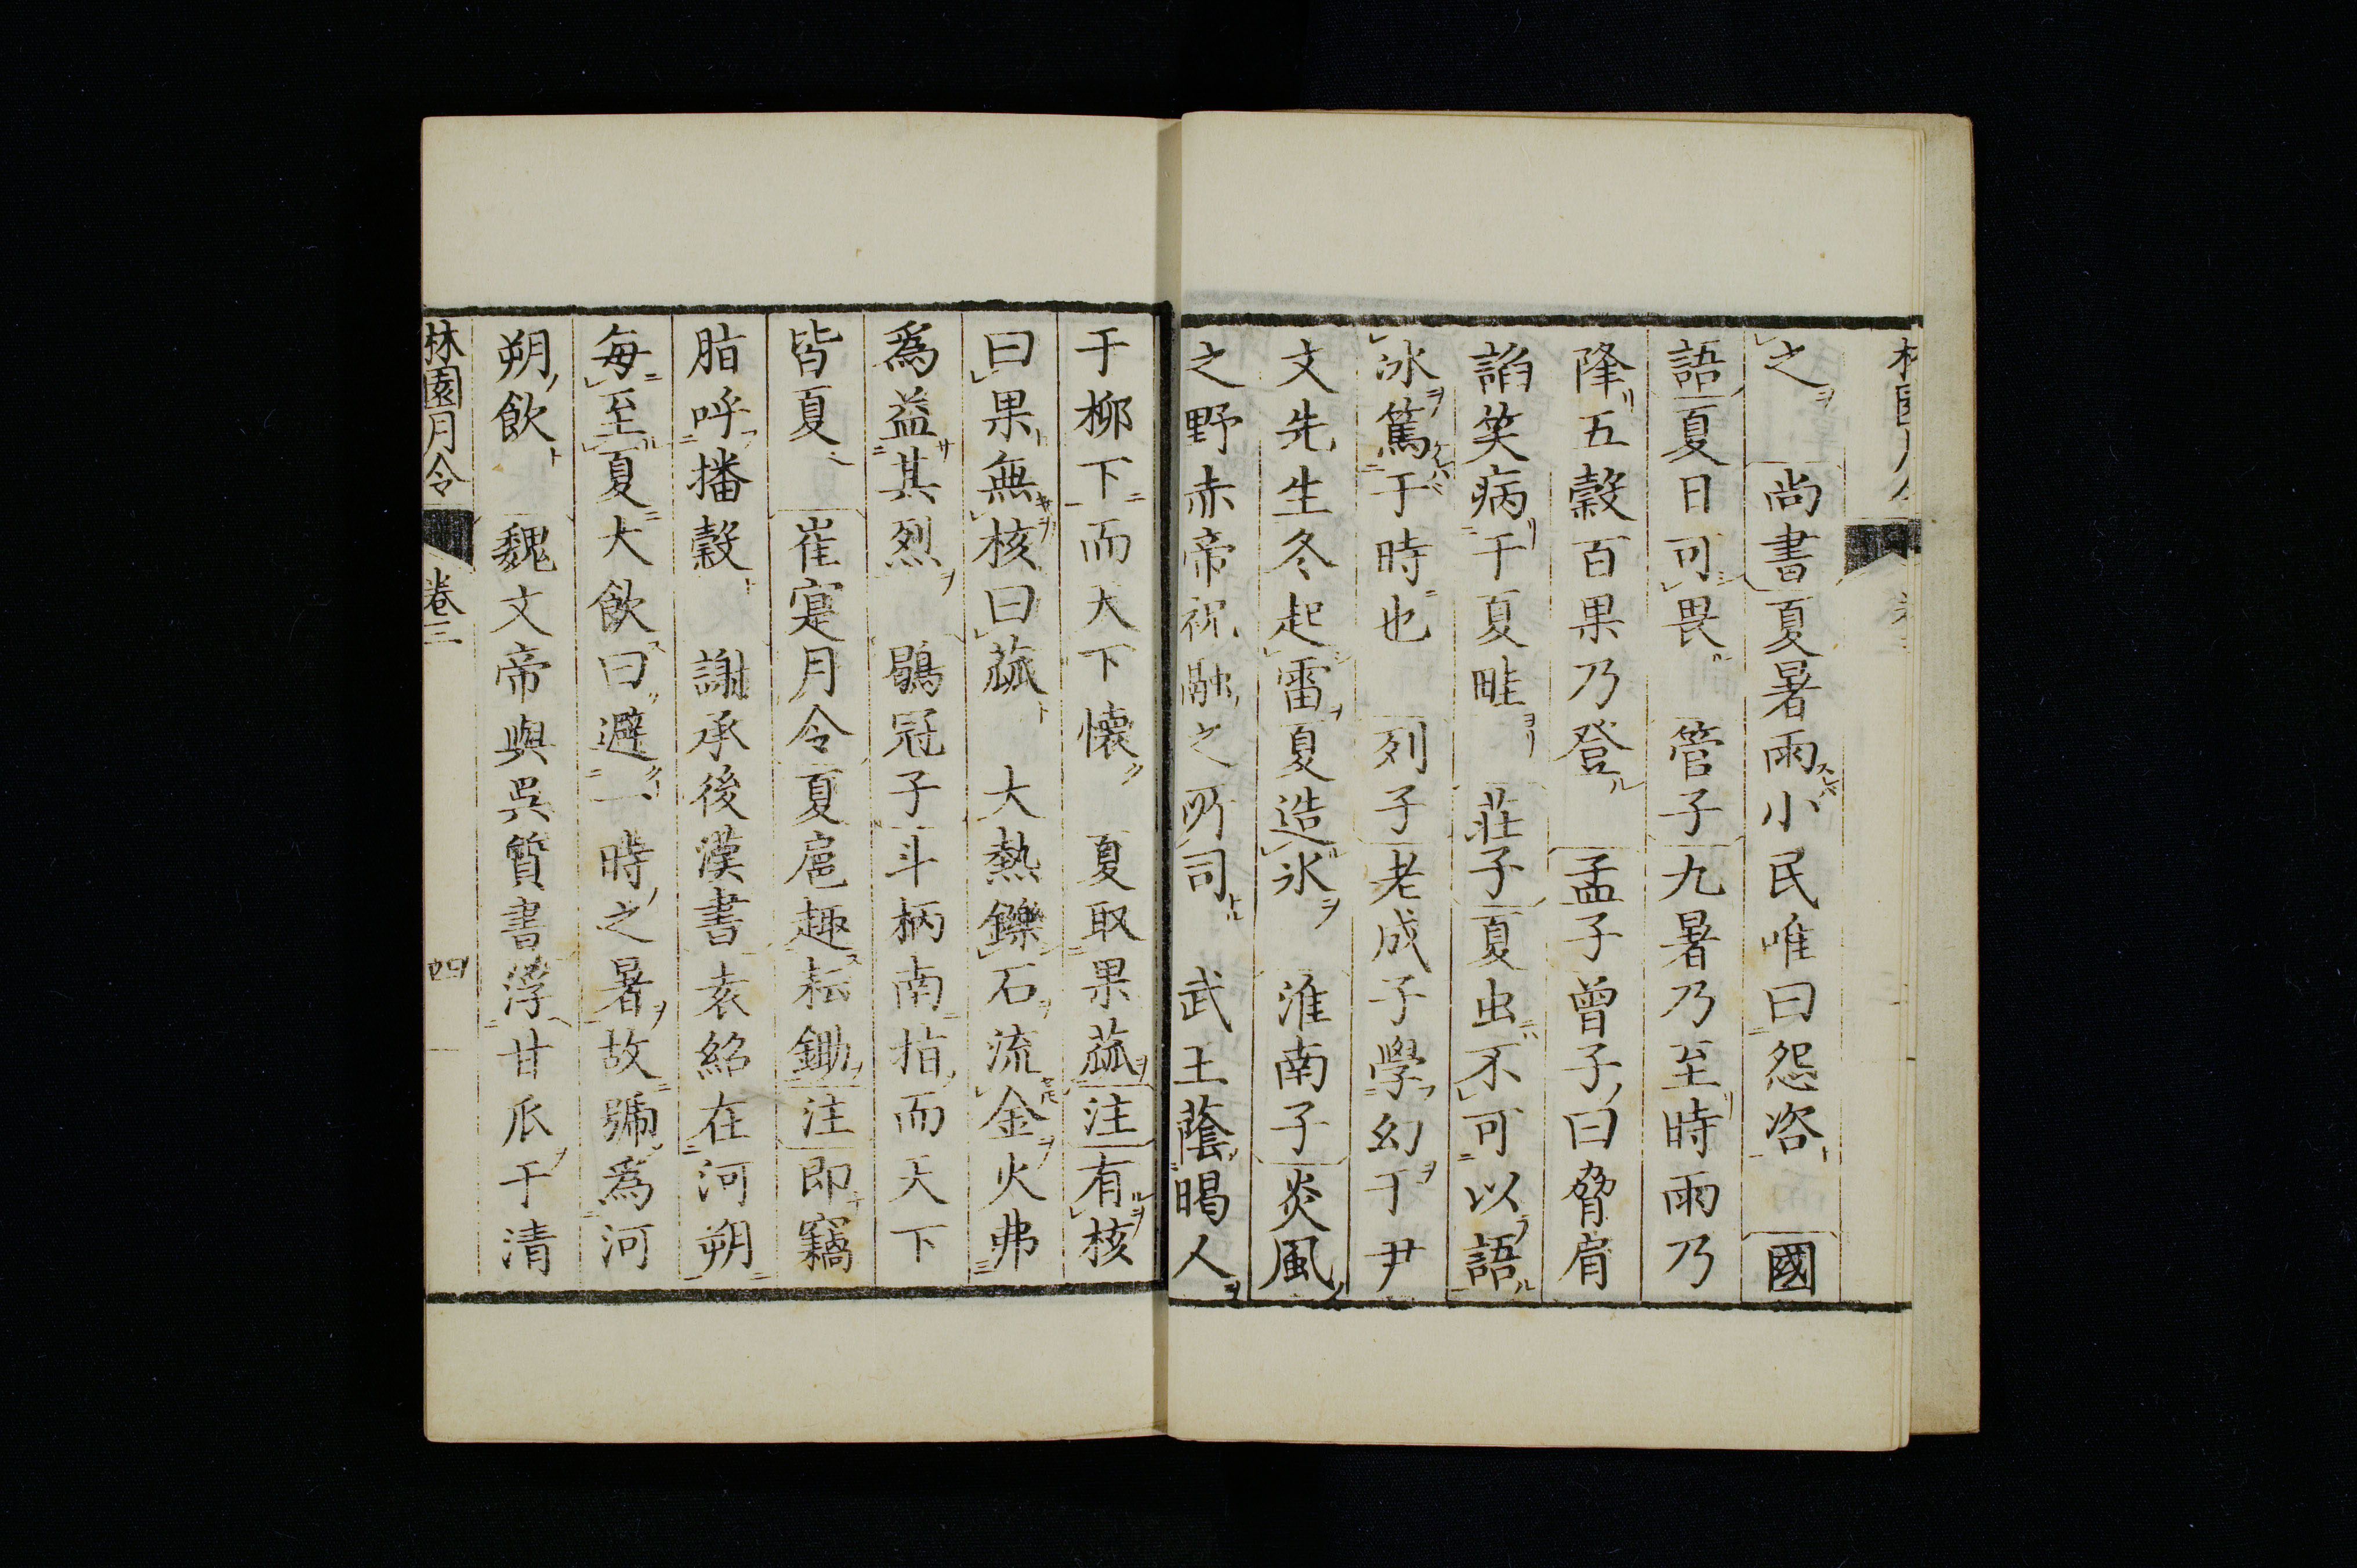 之尚書夏暑雨小民唯曰怨咨國
語夏日可畏管子九暑乃至時雨乃
降五穀百果乃登孟子曾子曰脅肩
諂笑病于夏畦莊子夏虫不可以語
冰篤于時也列子老成子學幻于尹
文先生冬起雷夏造氷淮南子炎風
之野赤帝祝融之所司武王蔭暍人
于柳下而天下懷夏取果蓏注有核
曰果無核曰蓏大熱鑠石流金火弗
為益其烈鶡冠子斗柄南指而天下
皆夏崔寔月令夏扈趣耘鋤注即竊
脂呼播穀謝承後漢書袁紹在河朔
每至夏大飲曰避一時之暑故號為河
朔飲魏文帝與吳質書浮甘瓜于清
林園月令 卷三 四